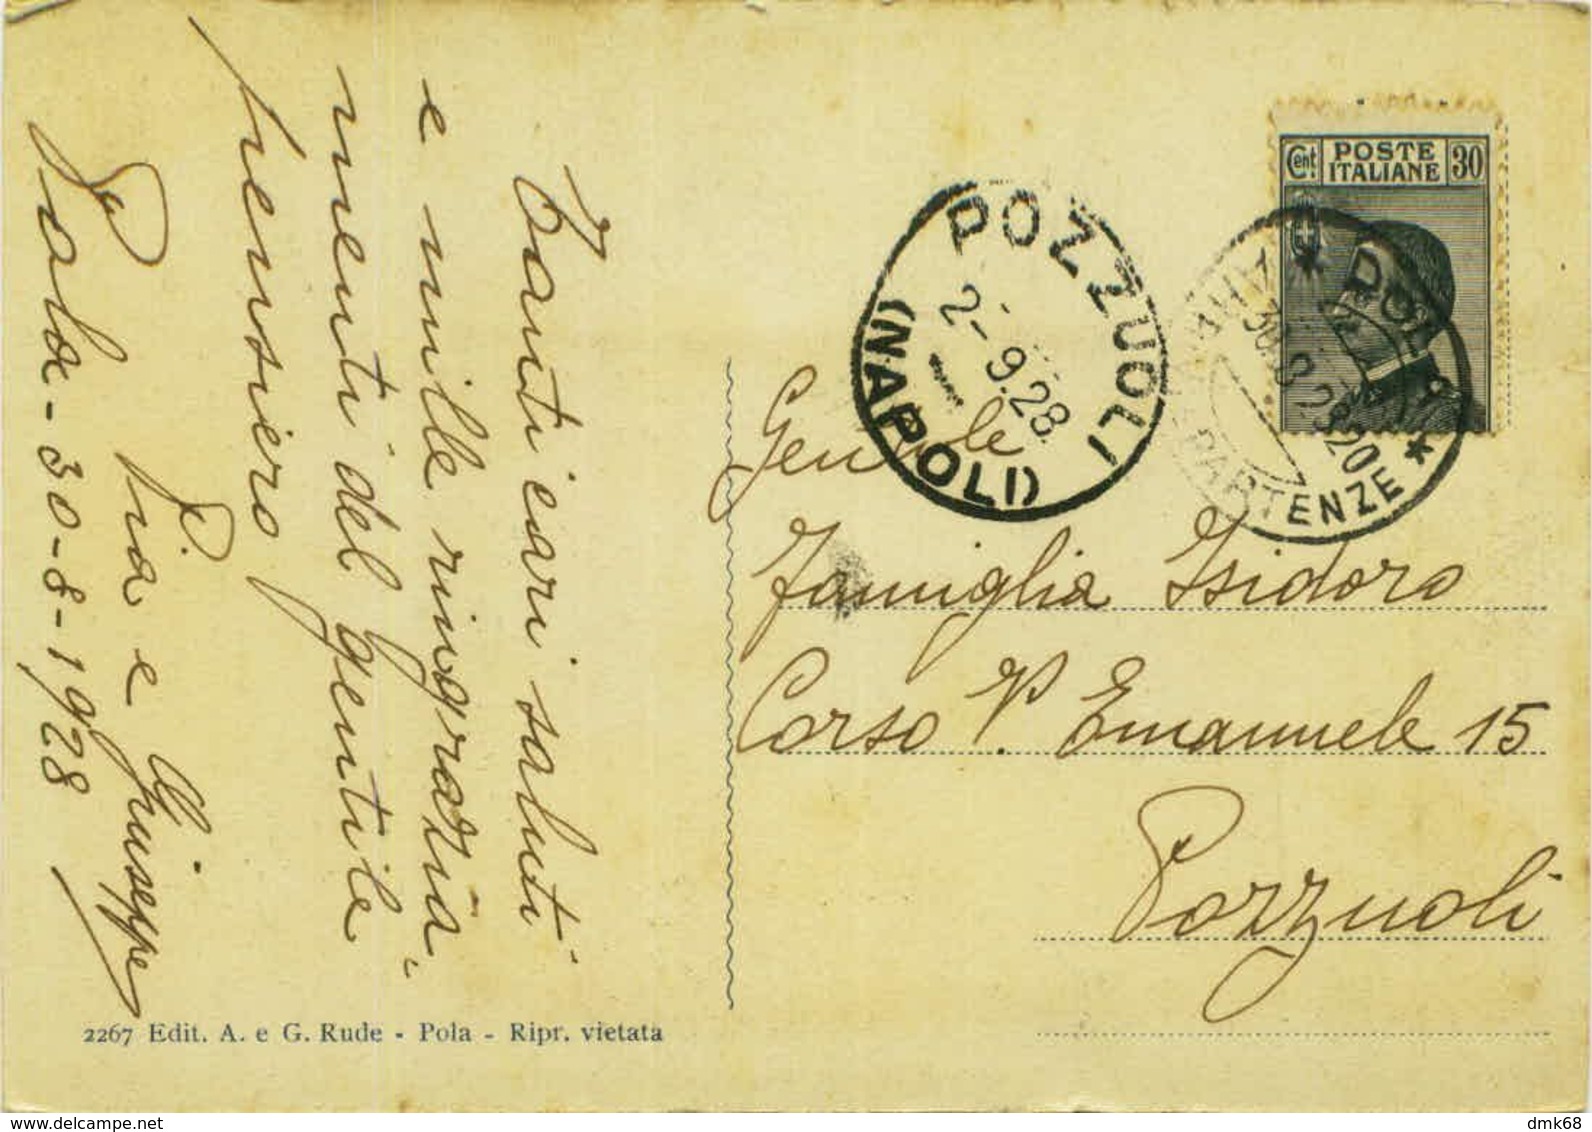 Tanti cari saluti
e mille ringrazia-
menti del gentile
pensiero
Pia e Giuseppe
Pola - 30-8-1928
POSTE
ITALIANE
Cent. 30
POZZUOLI
(NAPOLI)
2-9.28
POLA
PARTENZE
Gentile
Famiglia Isidoro
Corso V. Emanuele 15
Pozzuoli
2267 Edit. A. e G. Rude - Pola - Ripr. vietata
delcampe.net
dmk68